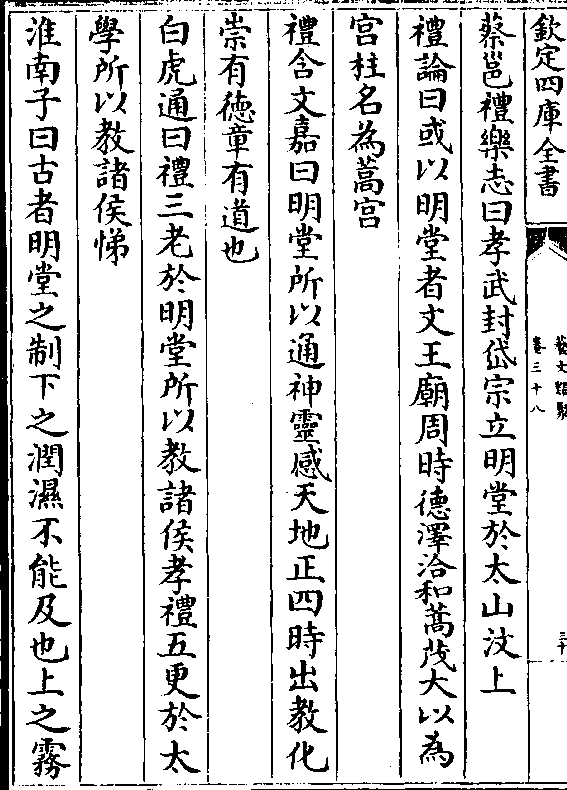 欽定四庫全書
藝文類聚
卷三十八
三十
蔡邕禮樂志曰孝武封岱宗立明堂於太山汶上
禮論曰或以明堂者文王廟周時德澤洽和蒿茂大以為
宫柱名為蒿宫
禮含文嘉曰明堂所以通神靈感天地正四時出教化
崇有德章有道也
白虎通曰禮三老於明堂所以教諸侯孝禮五更於太
學所以教諸侯悌
淮南子曰古者明堂之制下之潤濕不能及也上之霧